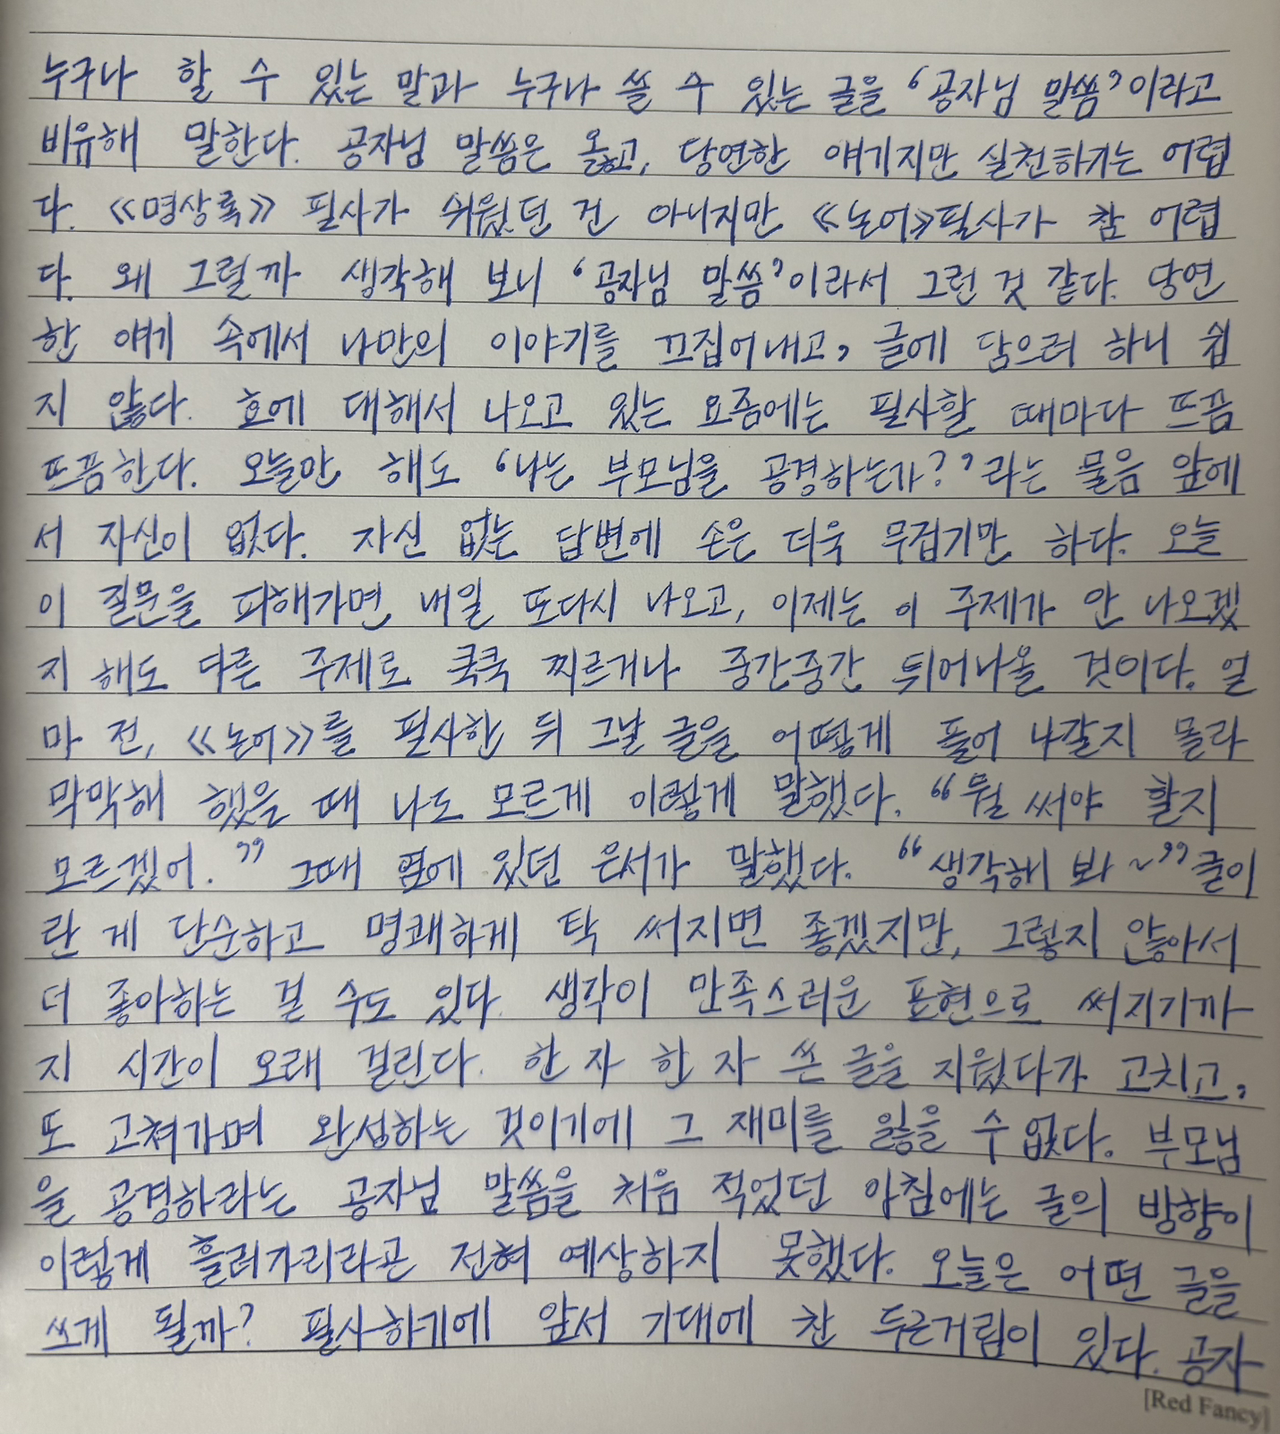 누구나 할 수 있는 말과 누구나 쓸 수 있는 글을 ‘공자님 말씀’이라고
비유해 말한다. 공자님 말씀은 옳고, 당연한 얘기지만 실천하기는 어렵
다. 《명상록》 필사가 쉬웠던 건 아니지만 《논어》필사가 참 어렵
다. 왜 그럴까 생각해 보니 ‘공자님 말씀’이라서 그런 것 같다. 당연
한 얘기 속에서 나만의 이야기를 끄집어내고, 글에 담으려 하니 쉽
지 않다. 효에 대해서 나오고 있는 요즘에는 필사할 때마다 뜨끔
뜨끔한다. 오늘만 해도 ‘나는 부모님을 공경하는가?’라는 물음 앞에
서 자신이 없다. 자신 없는 답변에 손은 더욱 무겁기만 하다. 오늘
이 질문을 피해가면, 내일 또다시 나오고, 이제는 이 주제가 안 나오겠
지 해도 다른 주제로 쿡쿡 찌르거나 중간중간 튀어나올 것이다. 얼
마 전, 《논어》를 필사한 뒤 그날 글을 어떻게 풀어 나갈지 몰라
막막해 했을 때 나도 모르게 이렇게 말했다. “뭘 써야 할지
모르겠어.” 그때 옆에 있던 은서가 말했다. “생각해 봐~” 글이
란 게 단순하고 명쾌하게 탁 써지면 좋겠지만, 그렇지 않아서
더 좋아하는 걸 수도 있다. 생각이 만족스러운 표현으로 써지기까
지 시간이 오래 걸린다. 한 자 한 자 쓴 글을 지웠다가 고치고,
또 고쳐가며 완성하는 것이기에 그 재미를 잃을 수 없다. 부모님
을 공경하라는 공자님 말씀을 처음 적었던 아침에는 글의 방향이
이렇게 흘러가리라곤 전혀 예상하지 못했다. 오늘은 어떤 글을
쓰게 될까? 필사하기에 앞서 기대에 찬 두근거림이 있다. 공자
[Red Fancy]